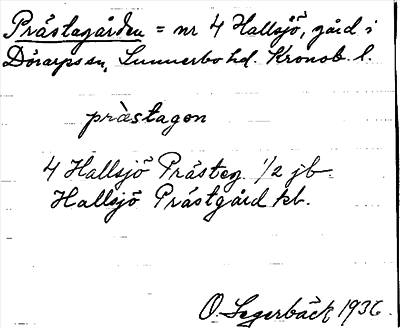 Prästagården = nr 4 Hallsjö, gård i
Dörarps sn, Sunnerbo hd. Kronob. l.
pràstagon
4 Hallsjö Prästeg. 1/2 jb.
Hallsjö Prästgård kb.
O. Segerbäck 1936.